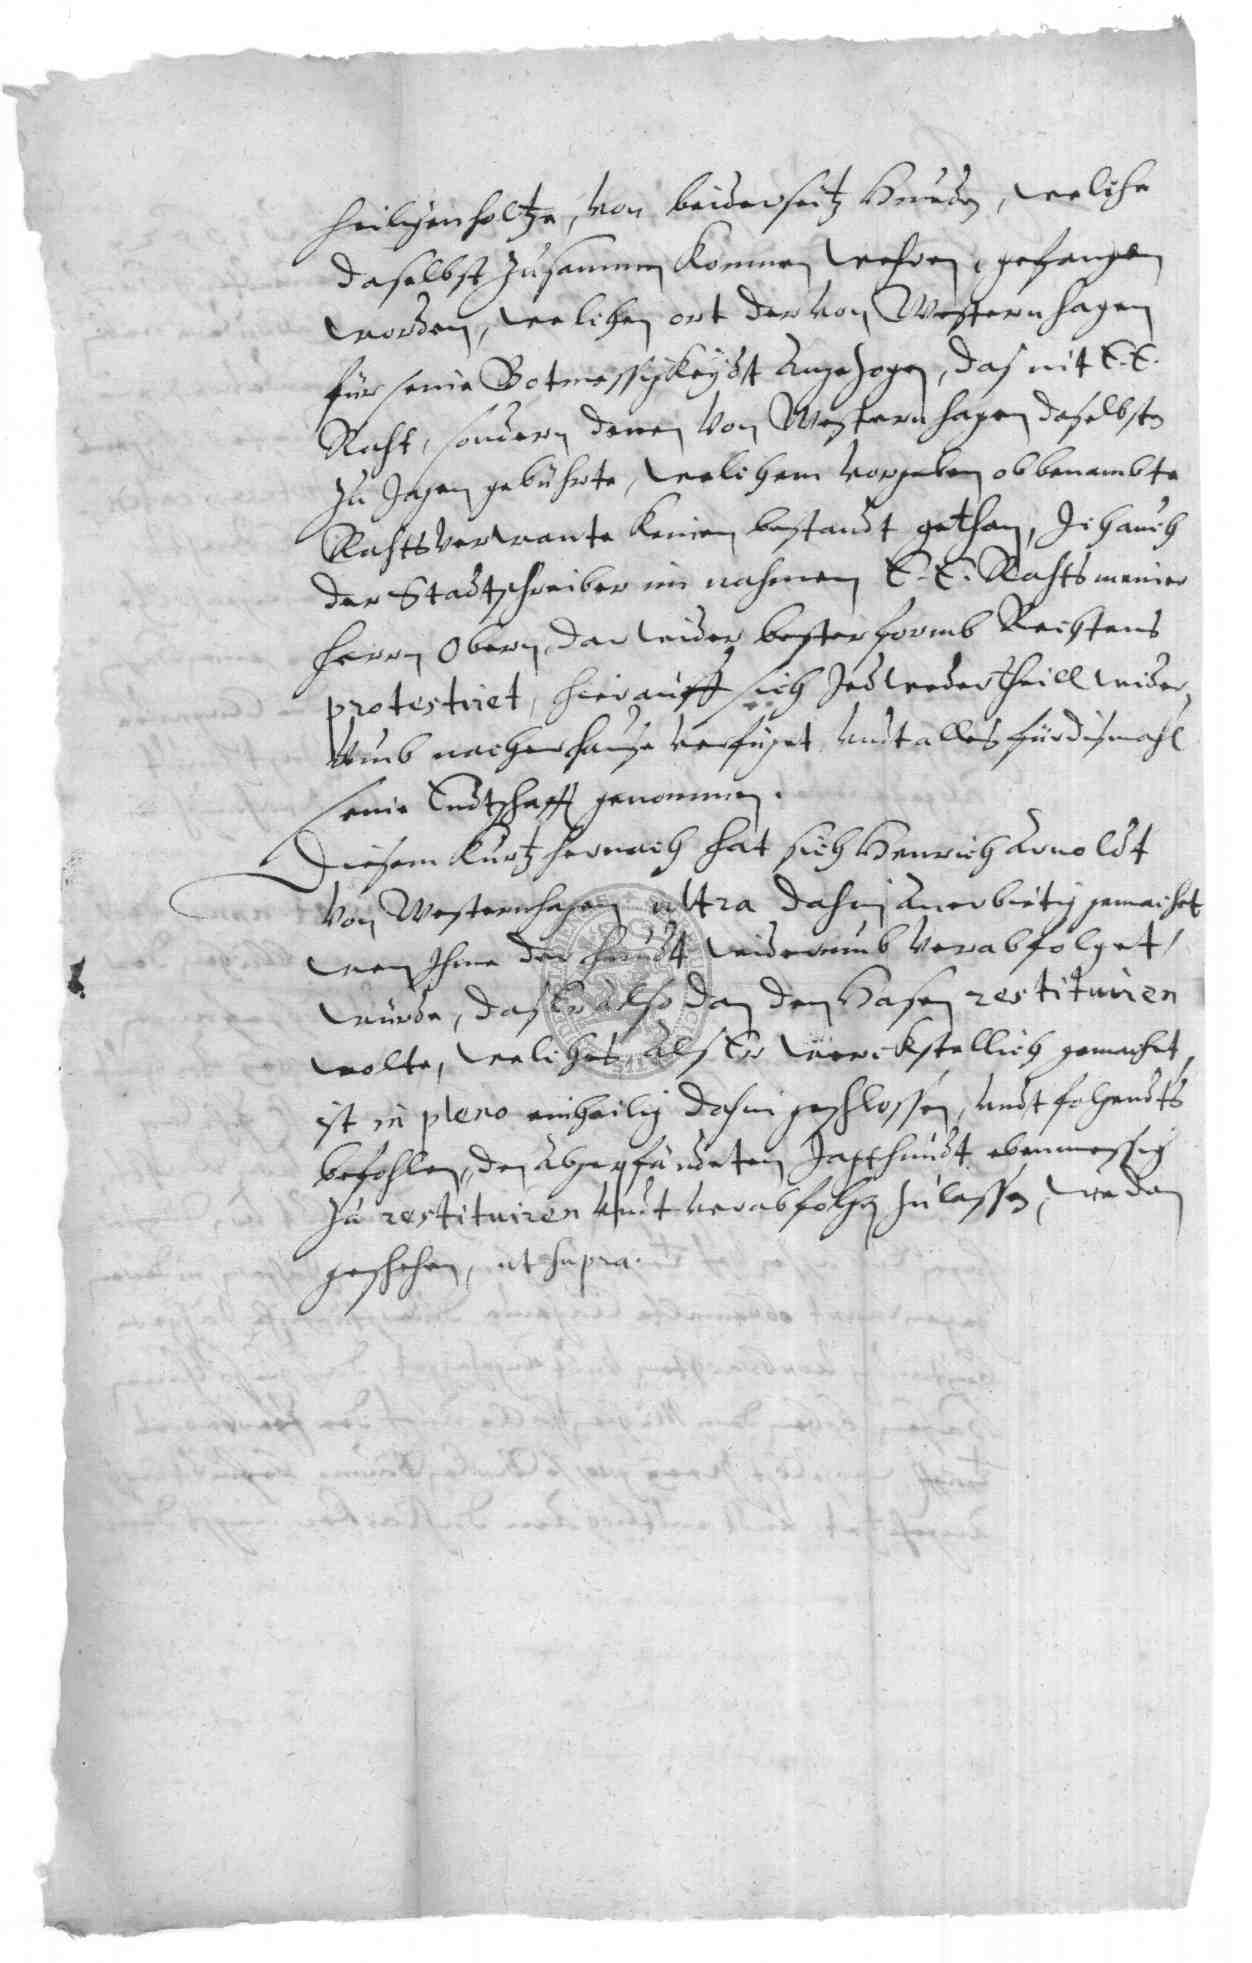 heiligenholtze, von beiderseitz Hunden, welche
daselbst zusammen kommen wehren, gefangen
worden, welchen ort der von Westernhagen
für seine Botmessigkeydt angezogen, das nit E. E.
Raht, sondern denen von Westernhagen daselbsten
zu Jagen gebührte, welichem vorgeben obbenambte
Rahtsverwante keinen bestandt gethan, Ich auch
der Stadtschreiber in nahmen E. E. Rahts meiner
herrn Obern, darwider bester formb Rechtens
protestiret, hierauff sich Jedweder theill wider,
umb nacher hause verfüget undt alles für dismahl
seine Endtschafft genommen.
Diesem kurtz hernach hat sich Henrich Arnoldt
von Westernhagen ultra dahin anerbietig gemachet
wen Ihme der hundt widerumb verabfolget
würde, das Er also dan den Hasen restituiren
wolte, weliches als Er werckstellich gemachet,
ist in pleno einheilig dahin geschlossen, undt folgendts
befohlen, den abgepfändeten Jagthundt ebenmessig
zu restituiren undt verabfolgen zulassen, wie dan
geschehen, ut supra.